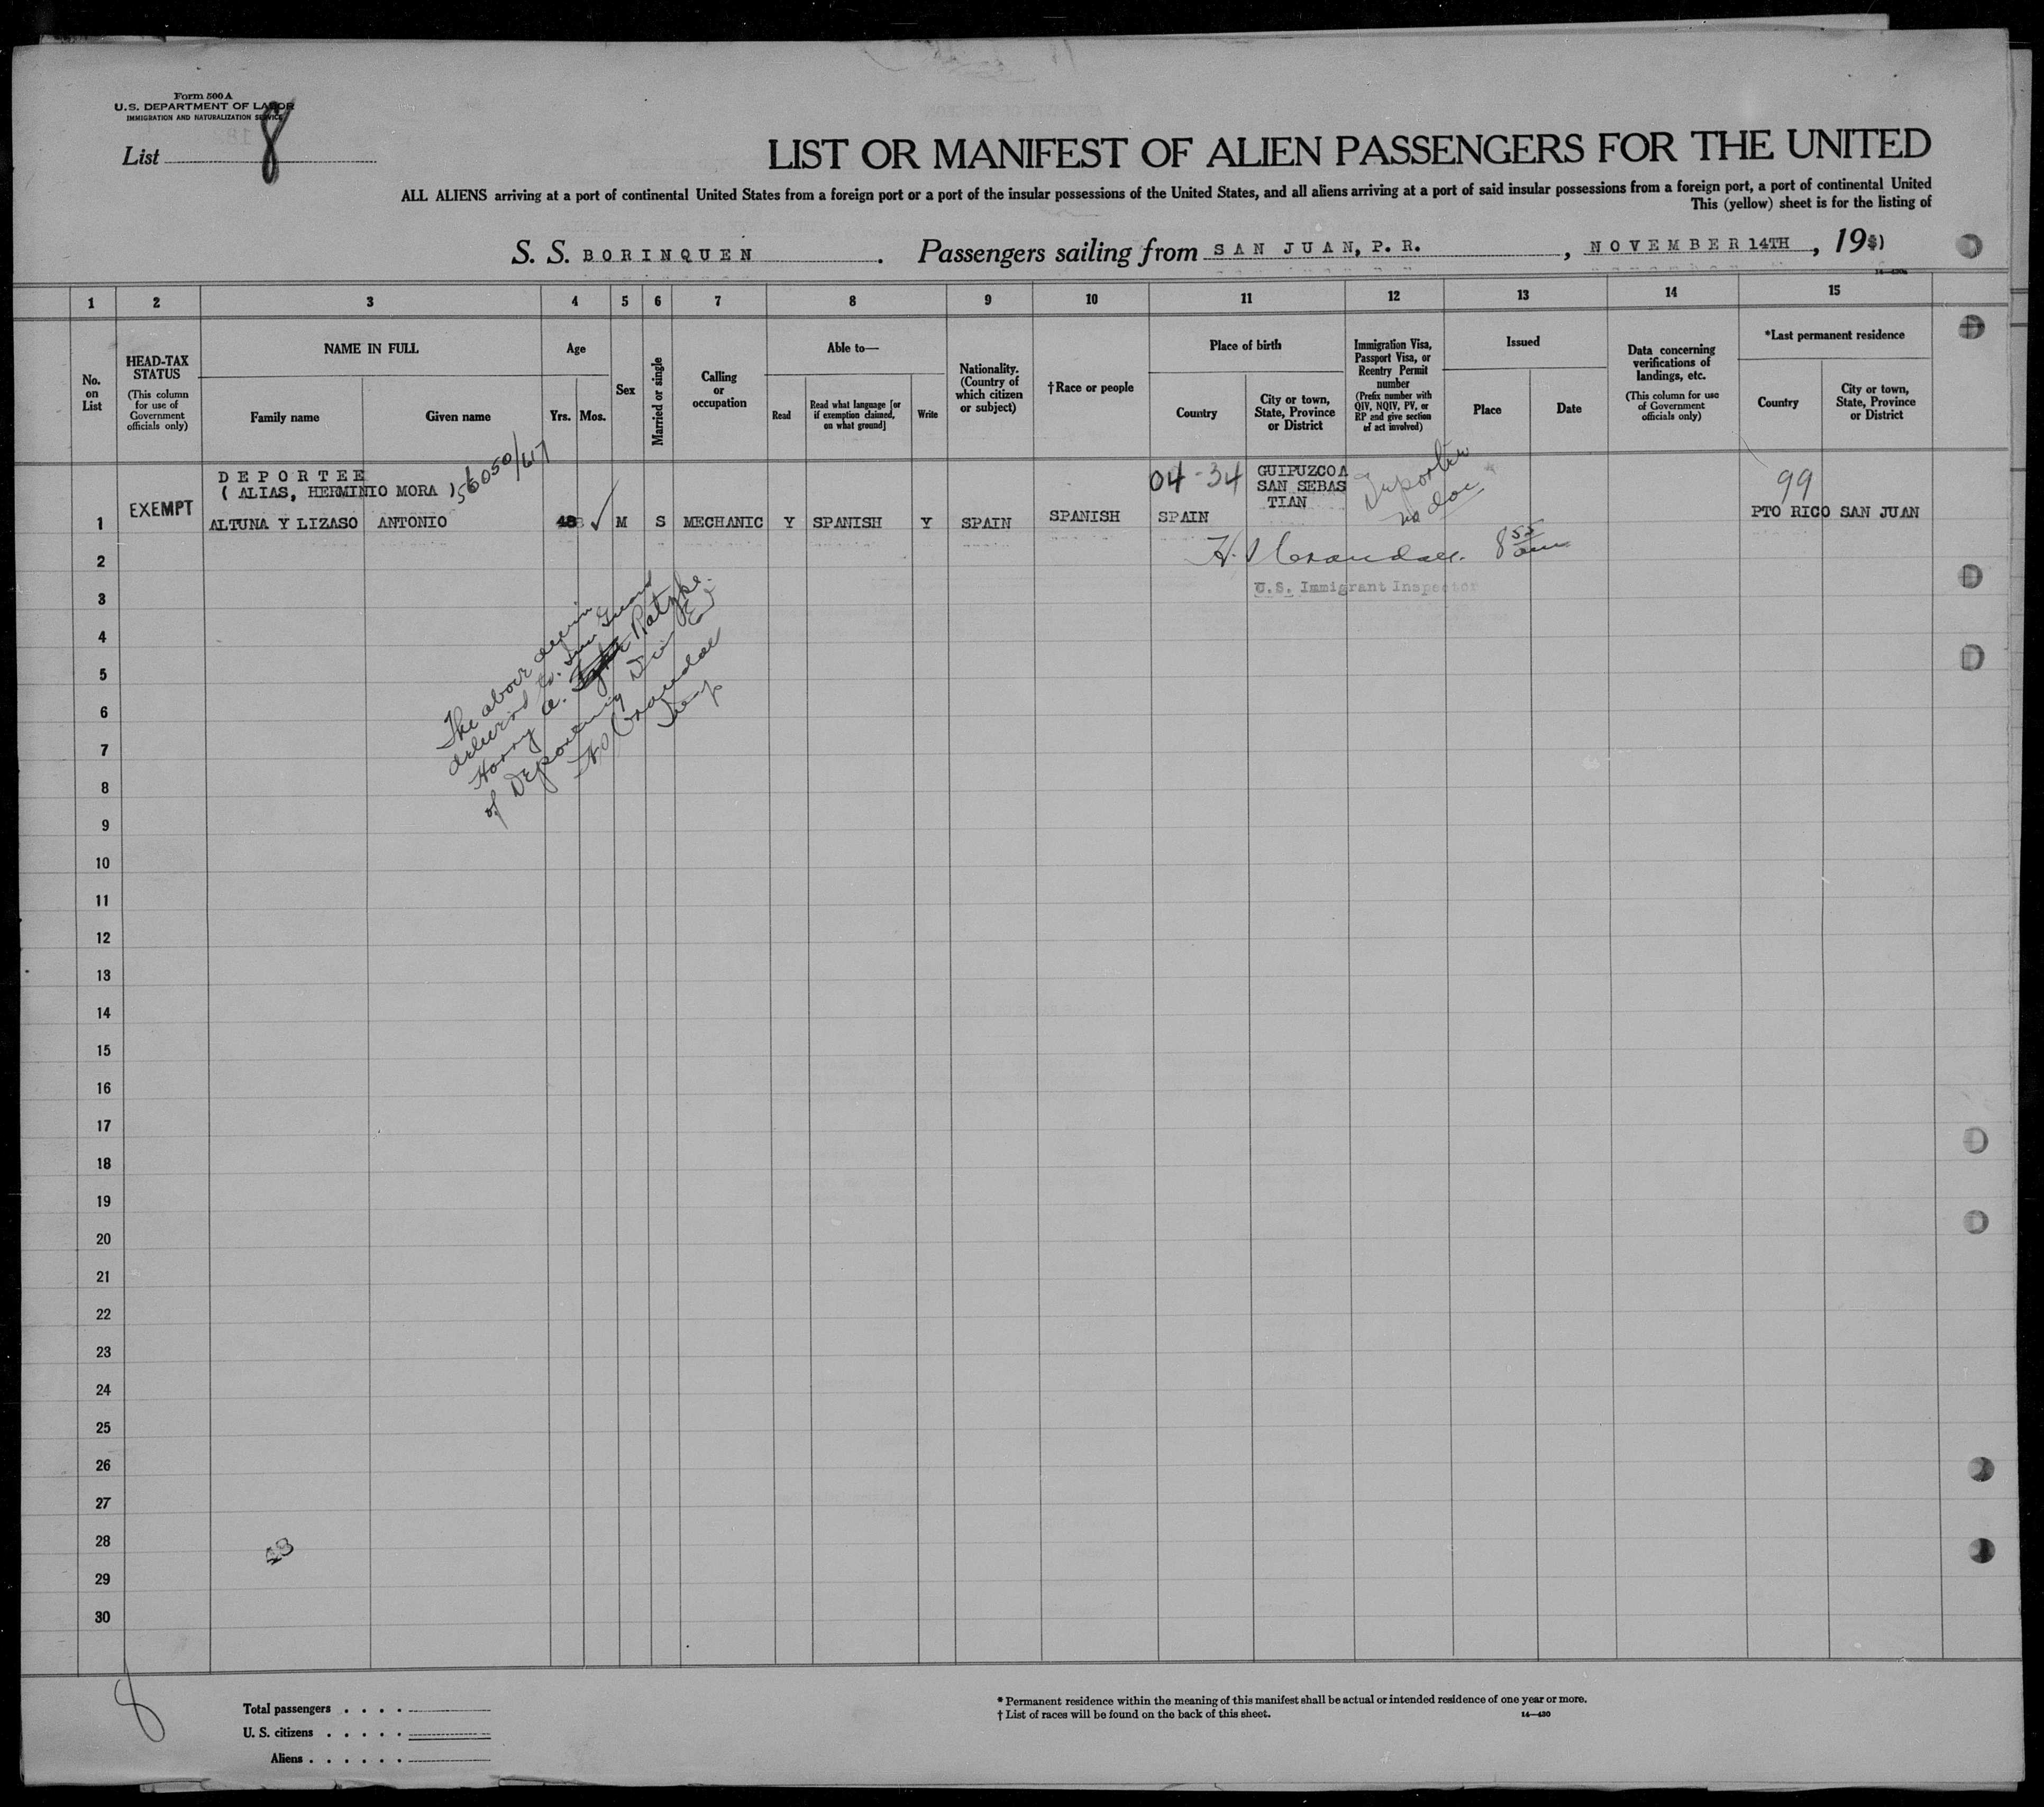 Form 500 A
U.S. DEPARTMENT OF LABOR
IMMIGRATION AND NATURALIZATION SERVICE
List 8
LIST OR MANIFEST OF ALIEN PASSENGERS FOR THE UNITED
ALL ALIENS arriving at a port of continental United States from a foreign port or a port of the insular possessions of the United States, and all aliens arriving at a port of said insular possessions from a foreign port, a port of continental United
This (yellow) sheet is for the listing of
S. S. BORINQUEN. Passengers sailing from SAN JUAN, P. R., NOVEMBER 14TH, 19
1 2 3 4 5 6 7 8 9 10 11 12 13 14 15
No. on List
HEAD-TAX STATUS
(This column for use of Government officials only)
NAME IN FULL
Family name
Given name
Age
Yrs. Mos.
Sex
Married or single
Calling or occupation
Able to—
Read
Read what language [or if exemption claimed, on what ground]
Write
Nationality. (Country of which citizen or subject)
†Race or people
Place of birth
Country
City or town, State, Province or District
Immigration Visa, Passport Visa, or Reentry Permit number
(Prefix number with QIV, NQIV, PV, or RP and give section of act involved)
Issued
Place
Date
Data concerning verifications of landings, etc.
(This column for use of Government officials only)
*Last permanent residence
Country
City or town, State, Province or District
DEPORTEE
( ALIAS, HERMINIO MORA ) 56050/617
04-34
GUIPUZCOA
SAN SEBAS
TIAN
no doc
99
1 EXEMPT ALTUNA Y LIZASO ANTONIO 48 ✓ M S MECHANIC Y SPANISH Y SPAIN SPANISH SPAIN PTO RICO SAN JUAN
H. S Crandall. 8 55 am
U.S. Immigrant Inspector
The above
delivered to Guard
Harry A. Ratzke
of Deporting Div EI
H S Crandall
Insp
2
3
4
5
6
7
8
9
10
11
12
13
14
15
16
17
18
19
20
21
22
23
24
25
26
27
28
29
30
8
Total passengers . . . .
U. S. citizens . . . . .
Aliens . . . . . .
* Permanent residence within the meaning of this manifest shall be actual or intended residence of one year or more.
† List of races will be found on the back of this sheet.
14—430